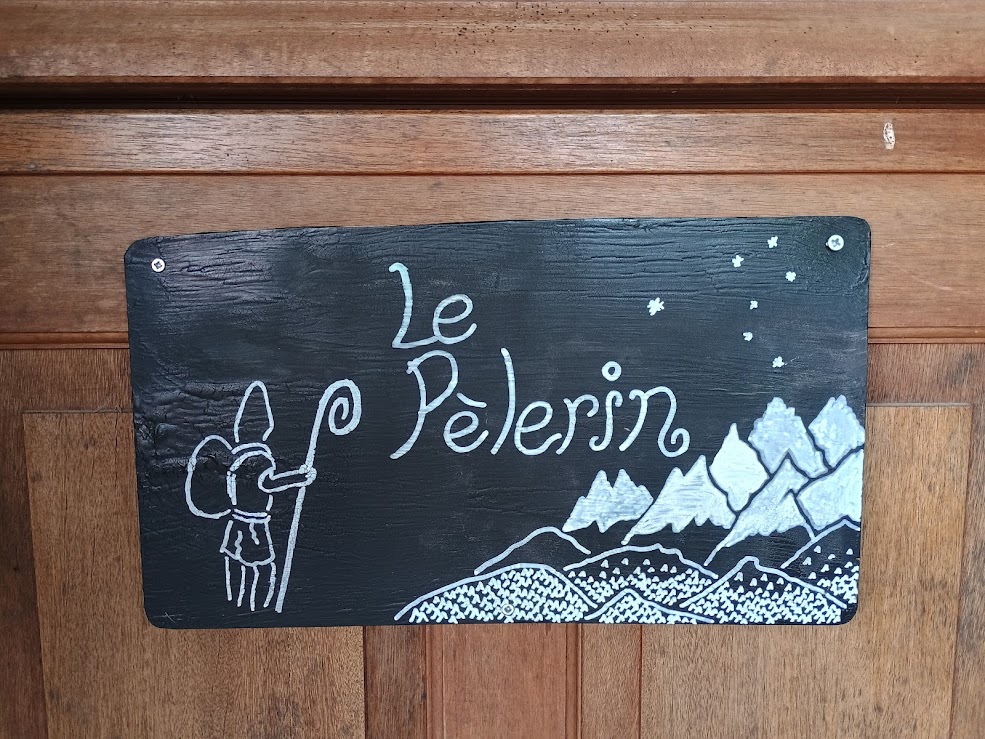 Le
Pèlerin